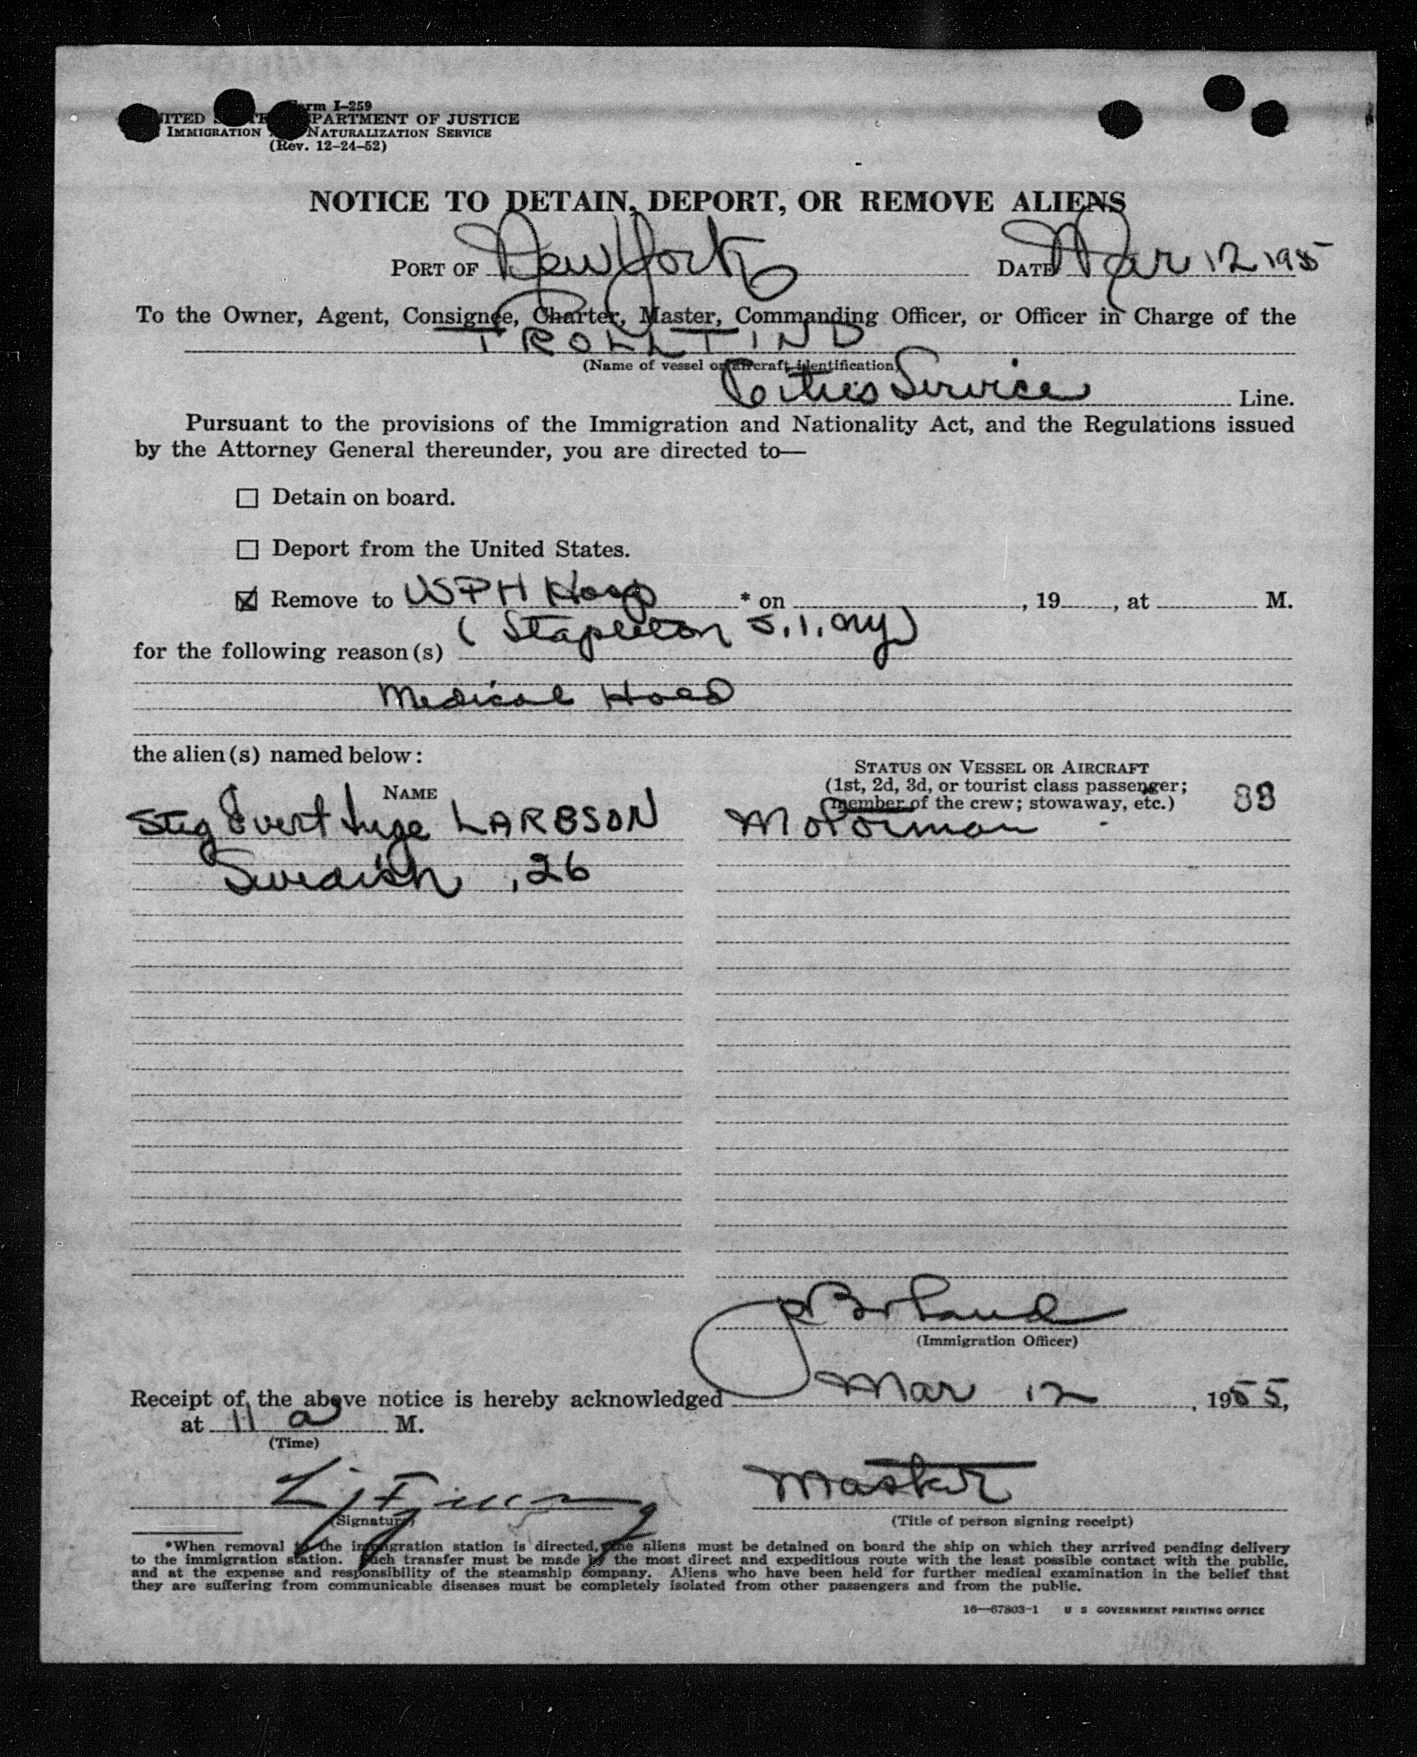 Form I-259
UNITED STATES DEPARTMENT OF JUSTICE
IMMIGRATION AND NATURALIZATION SERVICE
(Rev. 12-24-52)
NOTICE TO DETAIN, DEPORT, OR REMOVE ALIENS
PORT OF New York DATE Mar 12 1955
To the Owner, Agent, Consignee, Charter, Master, Commanding Officer, or Officer in Charge of the
TROLLTIND
(Name of vessel or aircraft identification)
Cities Service Line.
Pursuant to the provisions of the Immigration and Nationality Act, and the Regulations issued
by the Attorney General thereunder, you are directed to—
☐ Detain on board.
☐ Deport from the United States.
☒ Remove to USPH Hosp * on , 19 , at M.
(Stapleton S.I., NY)
for the following reason(s)
Medical Hold
the alien(s) named below:
STATUS ON VESSEL OR AIRCRAFT
(1st, 2d, 3d, or tourist class passenger;
member of the crew; stowaway, etc.)
NAME
88
Stig Evert Inge LARSSON Motorman
Swedish, 26
(Immigration Officer)
Receipt of the above notice is hereby acknowledged Mar 12, 1955,
at 11 a M.
(Time)
Master
(Signature) (Title of person signing receipt)
*When removal to the immigration station is directed, the aliens must be detained on board the ship on which they arrived pending delivery
to the immigration station. Such transfer must be made by the most direct and expeditious route with the least possible contact with the public,
and at the expense and responsibility of the steamship company. Aliens who have been held for further medical examination in the belief that
they are suffering from communicable diseases must be completely isolated from other passengers and from the public.
16—67803-1 U S GOVERNMENT PRINTING OFFICE